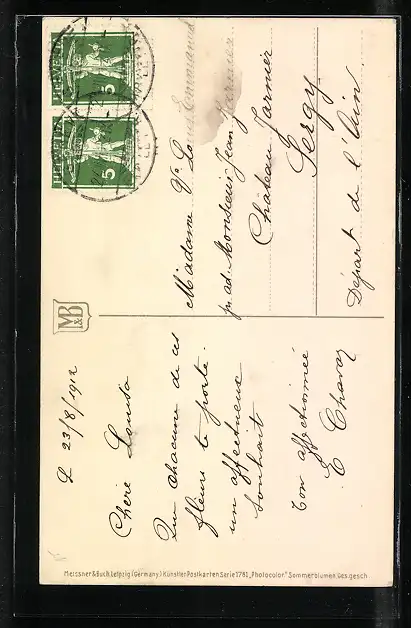 L 23/8/1912
Chère Louisa
Que chacune de ces
fleurs te porte
un affectueux
souhait
ton affectionnée
E Chavaz
Madame Ve Louis Emmanuel
pr ad. Monsieur Jean Jarnier
Château Jarnier
Sergy
Départ de l'Ain
HELVETIA
5
HELVETIA
5
M&B
Meissner & Buch Leipzig (Germany) Künstler Postkarten Serie 1781 „Photocolor" Sommerblumen Ges. gesch